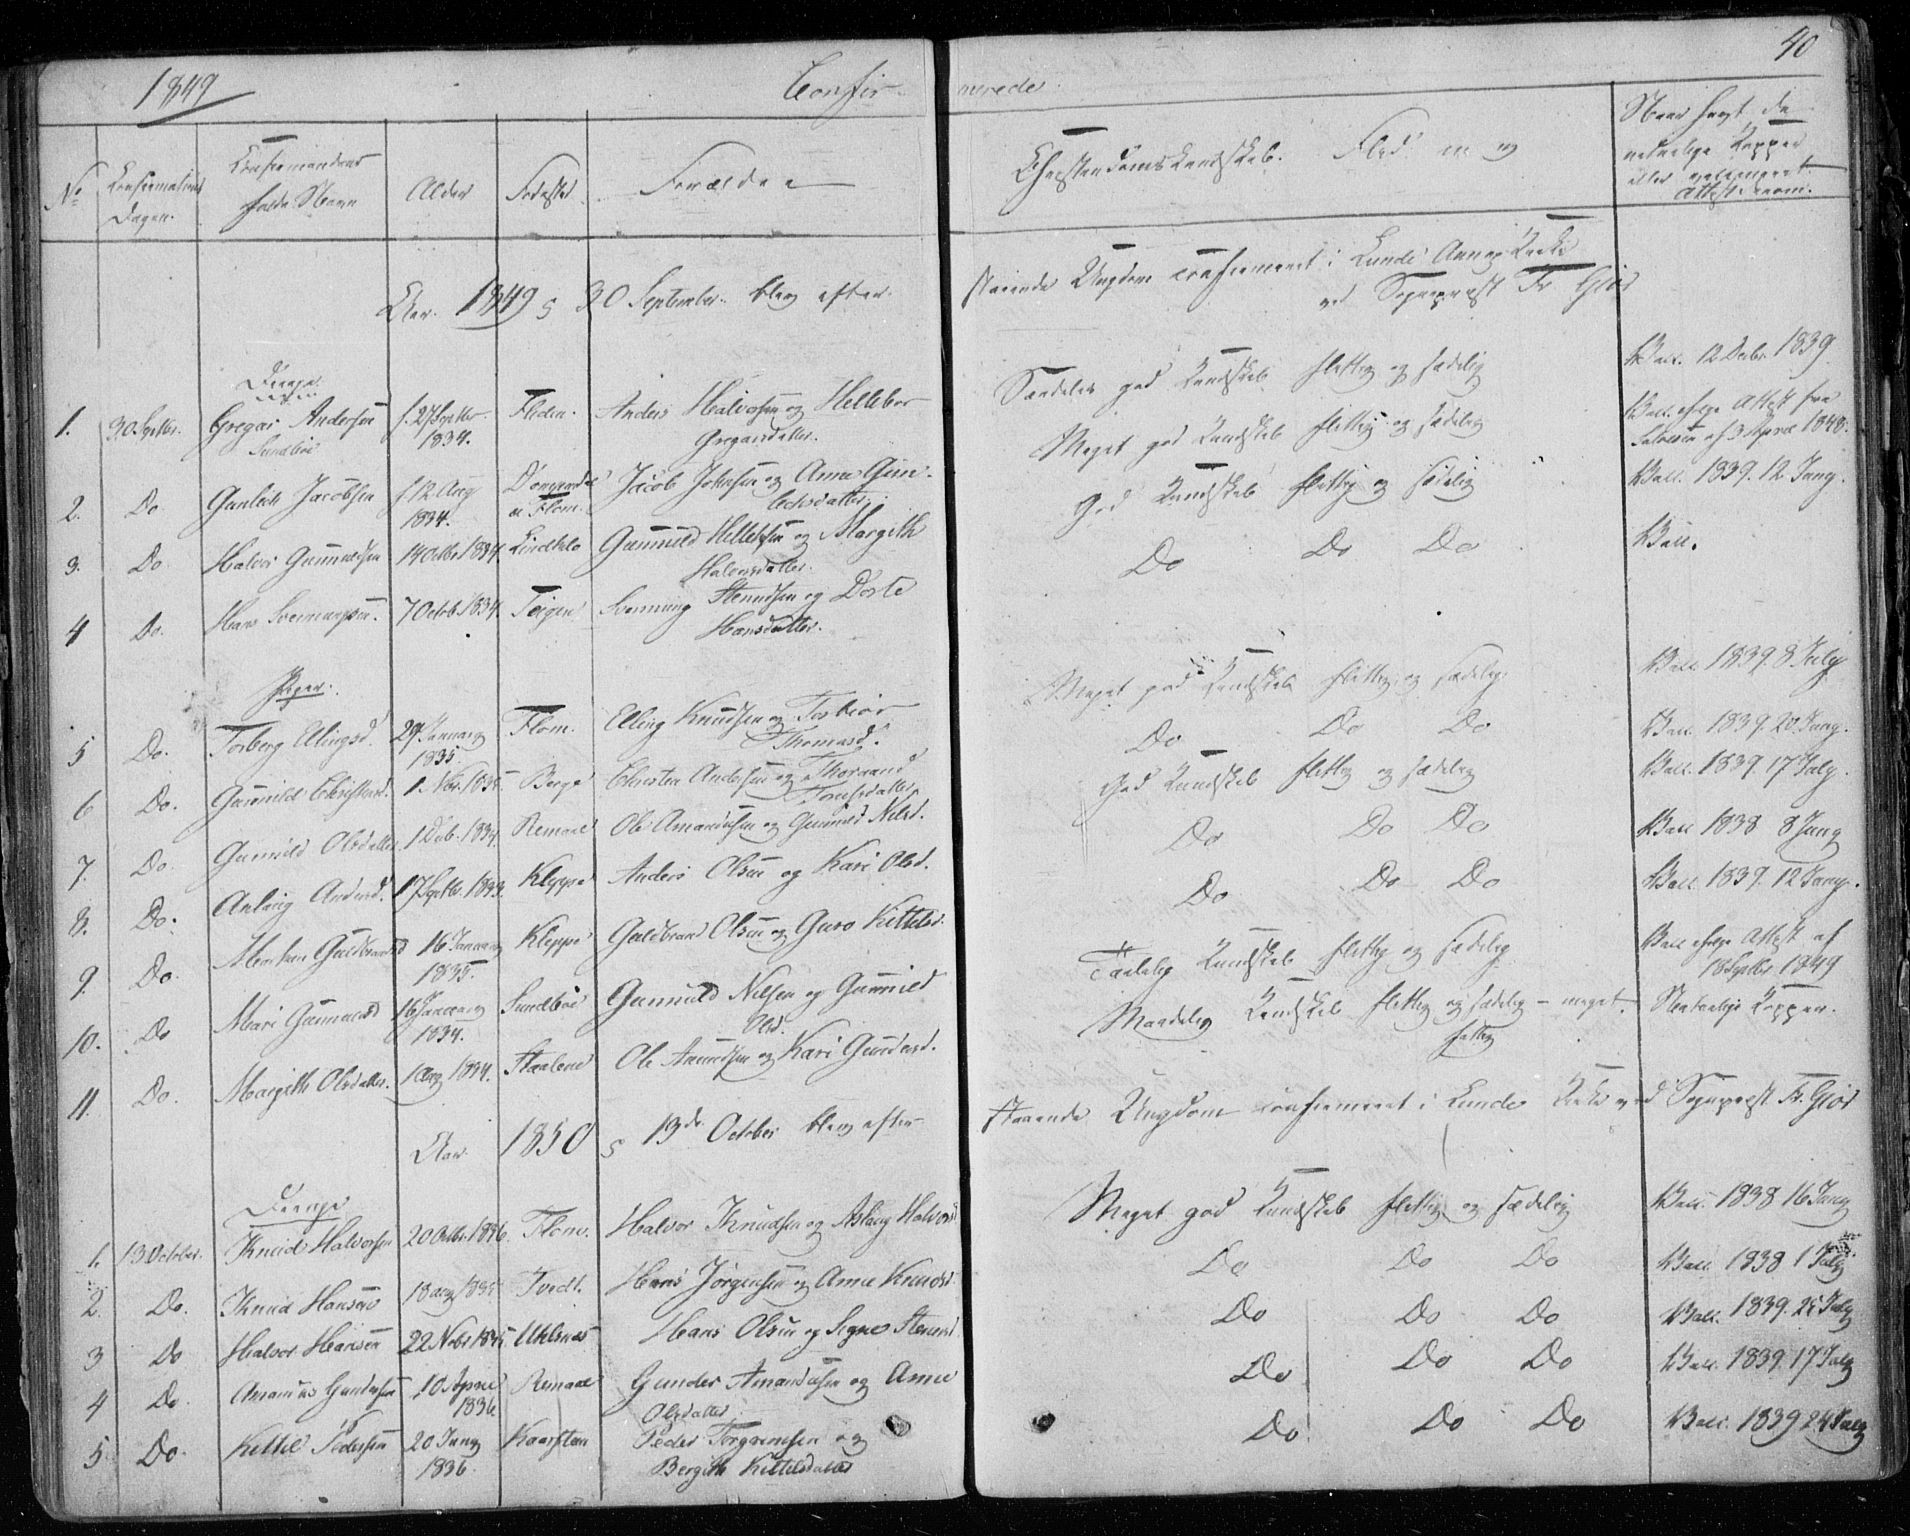 1849
Confir-
merede
40
No
Confirmations
Dagen.
Confirmandens
fulde Navn
Alder
Fødested
Forældre
Christendoms Kundskab. Flid og
Naar havt de
naturlige Kopper
eller vaccineret.
Attest derom.
Aar 1849 30 September blev efter-
staaende Ungdom confirmeret i Lunde Annex Kirke
ved Sognepræst Fr. Giør
Drenge
1. 30 Septbr. Gregar Andersen f. 27 Septbr. Anders Halvorsen og Hellebor
Sundbøe 1834. Gregarsdatter.
Særdeles god Kundskab flittig og sædelig
Vacc. 12 Debr. 1839
2. Do Gunleik Jacobsen f. 12 Aug Jacob Johnsen og Anne Gun-
1834. a Flom. leiksdatter.
Meget god Kundskab flittig og sædelig
Vacc. ifølge Attest fra
af 3 April 1848.
3. Do. Halvor Gunnuldsen 14 Octbr 1834. Lindkilo Gunnuld Kittelsen og Margith
Halvorsdatter.
God Kundskab flittig og sædelig
Vacc. 1839. 12 Juny.
4 Do. Hans Svenningsen. 7 Octob. 1834. Teigen Svenning Stenulsen og Dorte
Hansdatter.
Do Do Do
Vacc.
Piger.
5 Do. Torberg Ellingsd. 29 Januar Flom. Elling Knudsen og Torbiør
1835. Thomasd.
Meget god Kundskab flittig og sædelig
Vacc. 1839. 8 July
6 Do. Gunnild Christend. 1 Nbr. 1835. Berge Christen Andersen og
Do Do Do
Vacc. 1839. 20 Juny.
7. Do. Gunnild Olsdatter 1 Debr. 1834. Remaae Ole Amundsen og Gunnild Nilsd.
God Kundskab flittig og sædelig
Vacc. 1839. 17 July.
8. Do. Anlaug Andersd. 17 Septbr. 1833. Kleppe Anders Olsen og Kari Olsd.
Do Do Do
Vacc 1838 8 Juny
9. Do. Guldbrandsd 16 Januar Kleppe Guldbrand Olsen og Guro Kittelsd.
1835.
Do Do Do
Vacc. 1839. 12 Juny.
10. Do Mari Gunnuldsd 16 Januar Sundbøe Gunnuld Nilsen og Gunnild
1834. Olsd.
Kundskab flittig og sædelig
Vacc ifølge Attest af
18 Septbr. 1849
11. Do. Margith Olsdatter. 1 Aug 1834. Ole Amundsen og Kari Gundersd.
Maadelig Kundskab flittig og sædelig – meget
flittig
Naturlige Kopper.
Aar 1850 13de October blev efter-
staaende Ungdom confirmeret i Lunde Kirke ved Sognepræst Fr. Giør
Drenge
1. 13 October. Knud Halvorsen 20 Octbr. 1836. Flom. Halvor Knudsen og Aslaug Halvorsd
Meget god Kundskab flittig og sædelig
Vacc. 1838 16 Juny
2. Do. Knud Hansen 18 Aug 1835 Tvedt. Hans Jørgensen og Anne Knudsd.
Do Do Do
Vacc. 1838 1 July
3 Do Halvor Hansen 22 Nobr 1835. Uklenæs Hans Olsen og Signe
Do Do Do
Vacc. 1839. 25 July
4 Do. Amandus Gundersen 10 April Remaae Gunder Amandusen og Anne
1836 Olsdatter
Do Do Do
Vacc. 1839. 17 July
5 Do. Kittil Pedersen 20 Juny Kaarstan Peder Torgrimsen og
1836. Bergith Kittelsdatter
Do Do Do
Vacc. 1839 24 July